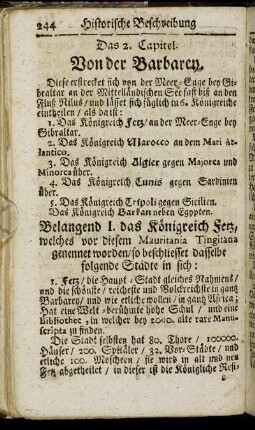 244 Historische Beschreibung
Das 2. Capitel.
Von der Barbarey.
Diese erstrecket sich von der Meer-Enge bey Gi-
braltar an der Mittelländischen See fast biß an den
Fluß Nilus / und lässet sich füglich in 6. Königreiche
eintheilen / als da ist:
1. Das Königreich Fetz / an der Meer-Enge bey
Gibraltar.
2. Das Königreich Marocco an dem Mari At-
lantico.
3. Das Königreich Algier gegen Majorca und
Minorca über.
4. Das Königreich Tunis gegen Sardinien
über.
5. Das Königreich Tripoli gegen Sicilien.
Das Königreich Barkan neben Egypten.
Belangend I. das Königreich Fetz,
welches vor diesem Mauritania Tingitana
genennet worden / so beschliesset dasselbe
folgende Städte in sich:
1. Fetz / die Haupt-Stadt gleiches Nahmens /
und die schönste / reicheste und Volckreichste in gantz
Barbarey / und wie etliche wollen / in gantz Africa;
Hat eine Welt-berühmte hohe Schul / und eine
Bibliothec, in welcher bey 2000. alte rare Manu-
scripta zu finden.
Die Stadt selbsten hat 80. Thore / 100000.
Häuser / 200. Spitäler / 32. Vor-Städte / und
etliche 100. Moscheen / sie wird in alt und neu
Fetz abgetheilet / in dieser ist die Königliche Resi-